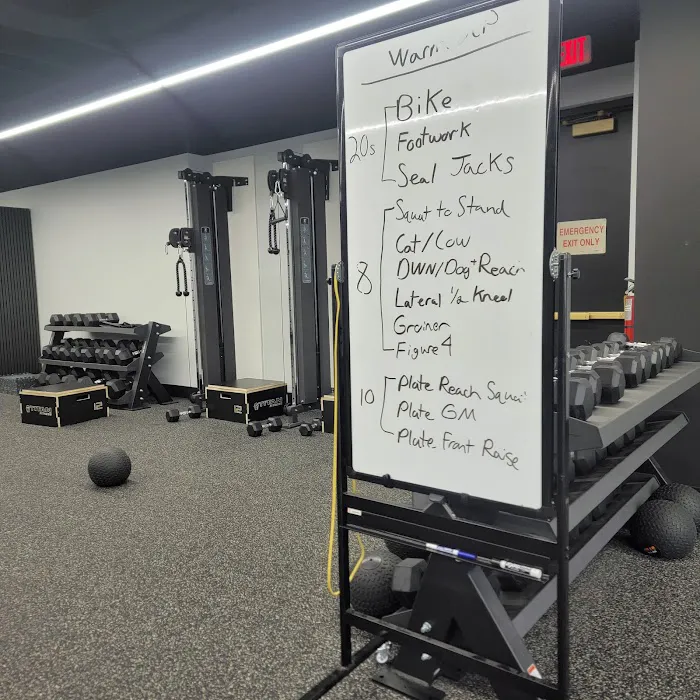 Warm up
EXIT
20s
Bike
Footwork
Seal Jacks
8
Squat to Stand
Cat/Cow
DWN/Dog+Reach
Lateral 1/2 Kneel
Groiner
Figure 4
10
Plate Reach Squat
Plate GM
Plate Front Raise
EMERGENCY
EXIT ONLY
TITAN
TITAN